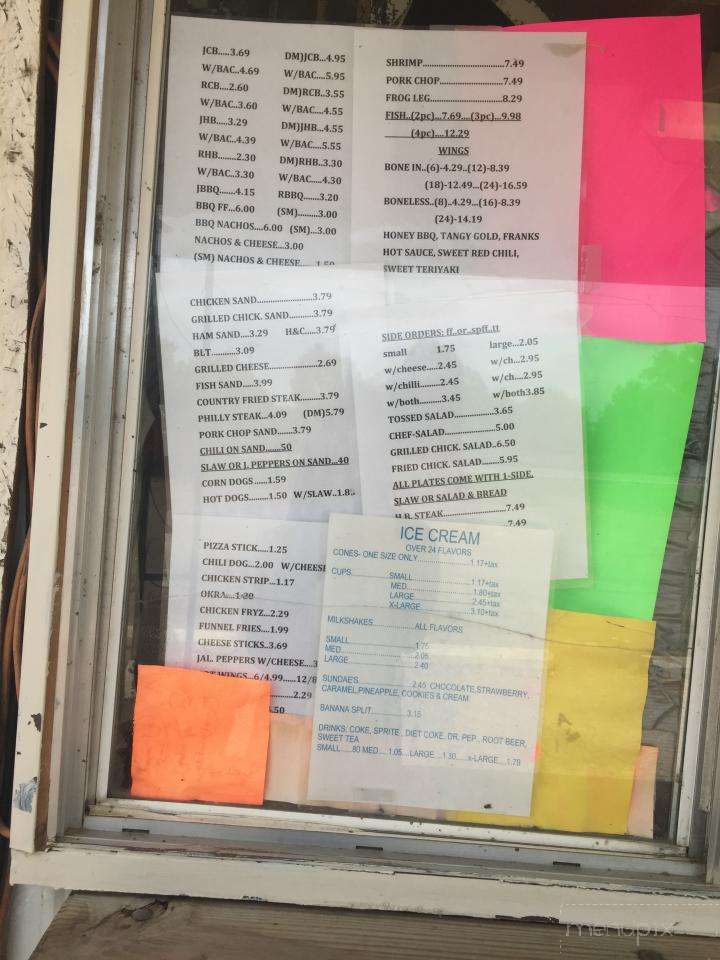 JCB.....3.69 DM)JCB...4.95
W/BAC..4.69 W/BAC....5.95
RCB....2.60 DM)RCB...3.55
W/BAC...3.60 W/BAC....4.55
JHB.....3.29 DM)JHB....4.55
W/BAC...4.39 W/BAC.....5.55
RHB........2.30 DM)RHB..3.30
W/BAC...3.30 W/BAC.....4.30
JBBQ.......4.15 RBBQ......3.20
BBQ FF...6.00 (SM)........3.00
BBQ NACHOS....6.00 (SM)...3.00
NACHOS & CHEESE...3.00
(SM) NACHOS & CHEESE..... 1.50
SHRIMP...............................7.49
PORK CHOP.........................7.49
FROG LEG............................8.29
FISH..(2pc)...7.69....(3pc)...9.98
(4pc)....12.29
WINGS
BONE IN..(6)-4.29..(12)-8.39
(18)-12.49...(24)-16.59
BONELESS..(8)..4.29..(16)-8.39
(24)-14.19
HONEY BBQ, TANGY GOLD, FRANKS
HOT SAUCE, SWEET RED CHILI,
SWEET TERIYAKI
CHICKEN SAND..........................3.79
GRILLED CHICK. SAND...............3.79
HAM SAND....3.29 H&C....3.79
BLT...........3.09
GRILLED CHEESE.......................2.69
FISH SAND....3.99
COUNTRY FRIED STEAK.........3.79
PHILLY STEAK...4.09 (DM)5.79
PORK CHOP SAND......3.79
CHILI ON SAND......50
SLAW OR J. PEPPERS ON SAND...40
CORN DOGS......1.59
HOT DOGS.....1.50 W/SLAW..1.8
SIDE ORDERS: ff..or..spff..tt
small 1.75 large...2.05
w/cheese.....2.45 w/ch...2.95
w/chilli........2.45 w/ch....2.95
w/both........3.45 w/both3.85
TOSSED SALAD...................3.65
CHEF-SALAD.......................5.00
GRILLED CHICK. SALAD..6.50
FRIED CHICK. SALAD.......5.95
ALL PLATES COME WITH 1-SIDE,
SLAW OR SALAD & BREAD
H.B. STEAK......................7.49
7.49
PIZZA STICK.....1.25
CHILI DOG...2.00 W/CHEESE
CHICKEN STRIP...1.17
OKRA....1.30
CHICKEN FRYZ...2.29
FUNNEL FRIES....1.99
CHEESE STICKS..3.69
JAL. PEPPERS W/CHEESE....3
WINGS...6/4.99......12/8
..........2.29
.50
ICE CREAM
OVER 24 FLAVORS
CONES- ONE SIZE ONLY......................1.17+tax
CUPS.................SMALL.........................1.17+tax
MED............................1.80+tax
LARGE........................2.45+tax
X-LARGE....................3.10+tax
MILKSHAKES..................ALL FLAVORS
SMALL...............................1.75
MED..................................2.05
LARGE..............................2.40
SUNDAE'S.........................2.45 CHOCOLATE,STRAWBERRY,
CARAMEL,PINEAPPLE, COOKIES & CREAM
BANANA SPLIT..............3.15
DRINKS: COKE, SPRITE, DIET COKE, DR. PEP., ROOT BEER,
SWEET TEA
SMALL .....80 MED.... 1.05....LARGE...1.30.....x-LARGE...1.79
menupix